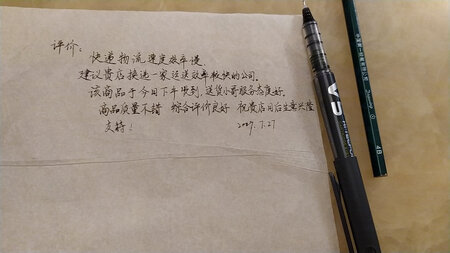 评价：
快递物流速度效率慢
建议贵店换选一家运送效率较快的公司.
该商品于今日下午收到,送货小哥服务态度好,
商品质量不错 综合评价良好 祝贵店日后生意兴隆
支持！
7.27
V5
4B